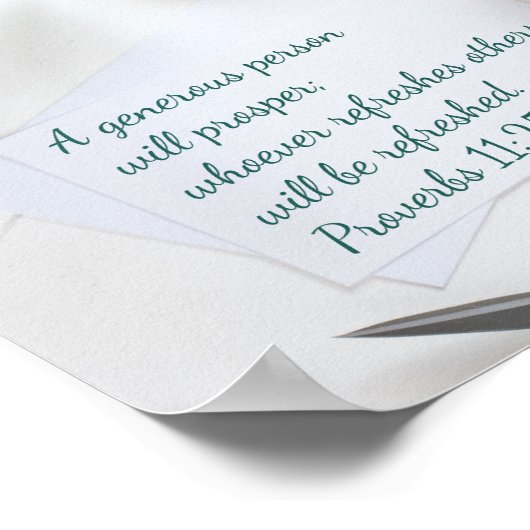 A generous person
will prosper;
whoever refreshes other
will be refreshed.
Proverbs 11:25